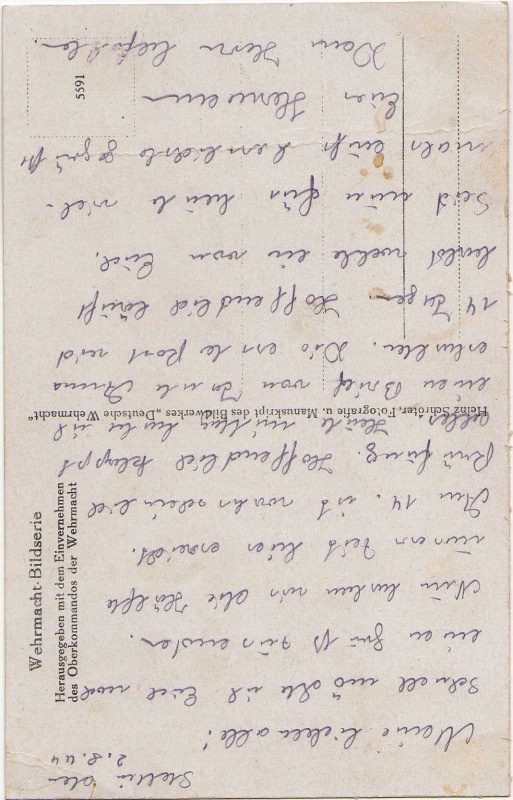 Stettin den
2.8.44
Meine lieben alle!
Schnell möchte ich Euch noch
einen Gruß zusenden.
Nun haben wir die Hälfte
unserer Zeit hier erreicht.
Am 14. ist wahrscheinlich
Prüfung. Hoffendlich klappt
alles. Heute mittag habe ich
einen Brief von Tante Anna
erhalten. Die erste Post seid
14 Tagen. Hoffendlich läuft
bald welche ein von Euch.
Seid nun für heute viel-
mals aufs herzlichste gegrüßt
Euer Hermann
Dem Herrn befohlen.
Wehrmacht-Bildserie
Herausgegeben mit dem Einvernehmen
des Oberkommandos der Wehrmacht
Heinz Schröter, Fotografie u. Manuskript des Bildwerkes „Deutsche Wehrmacht"
5591